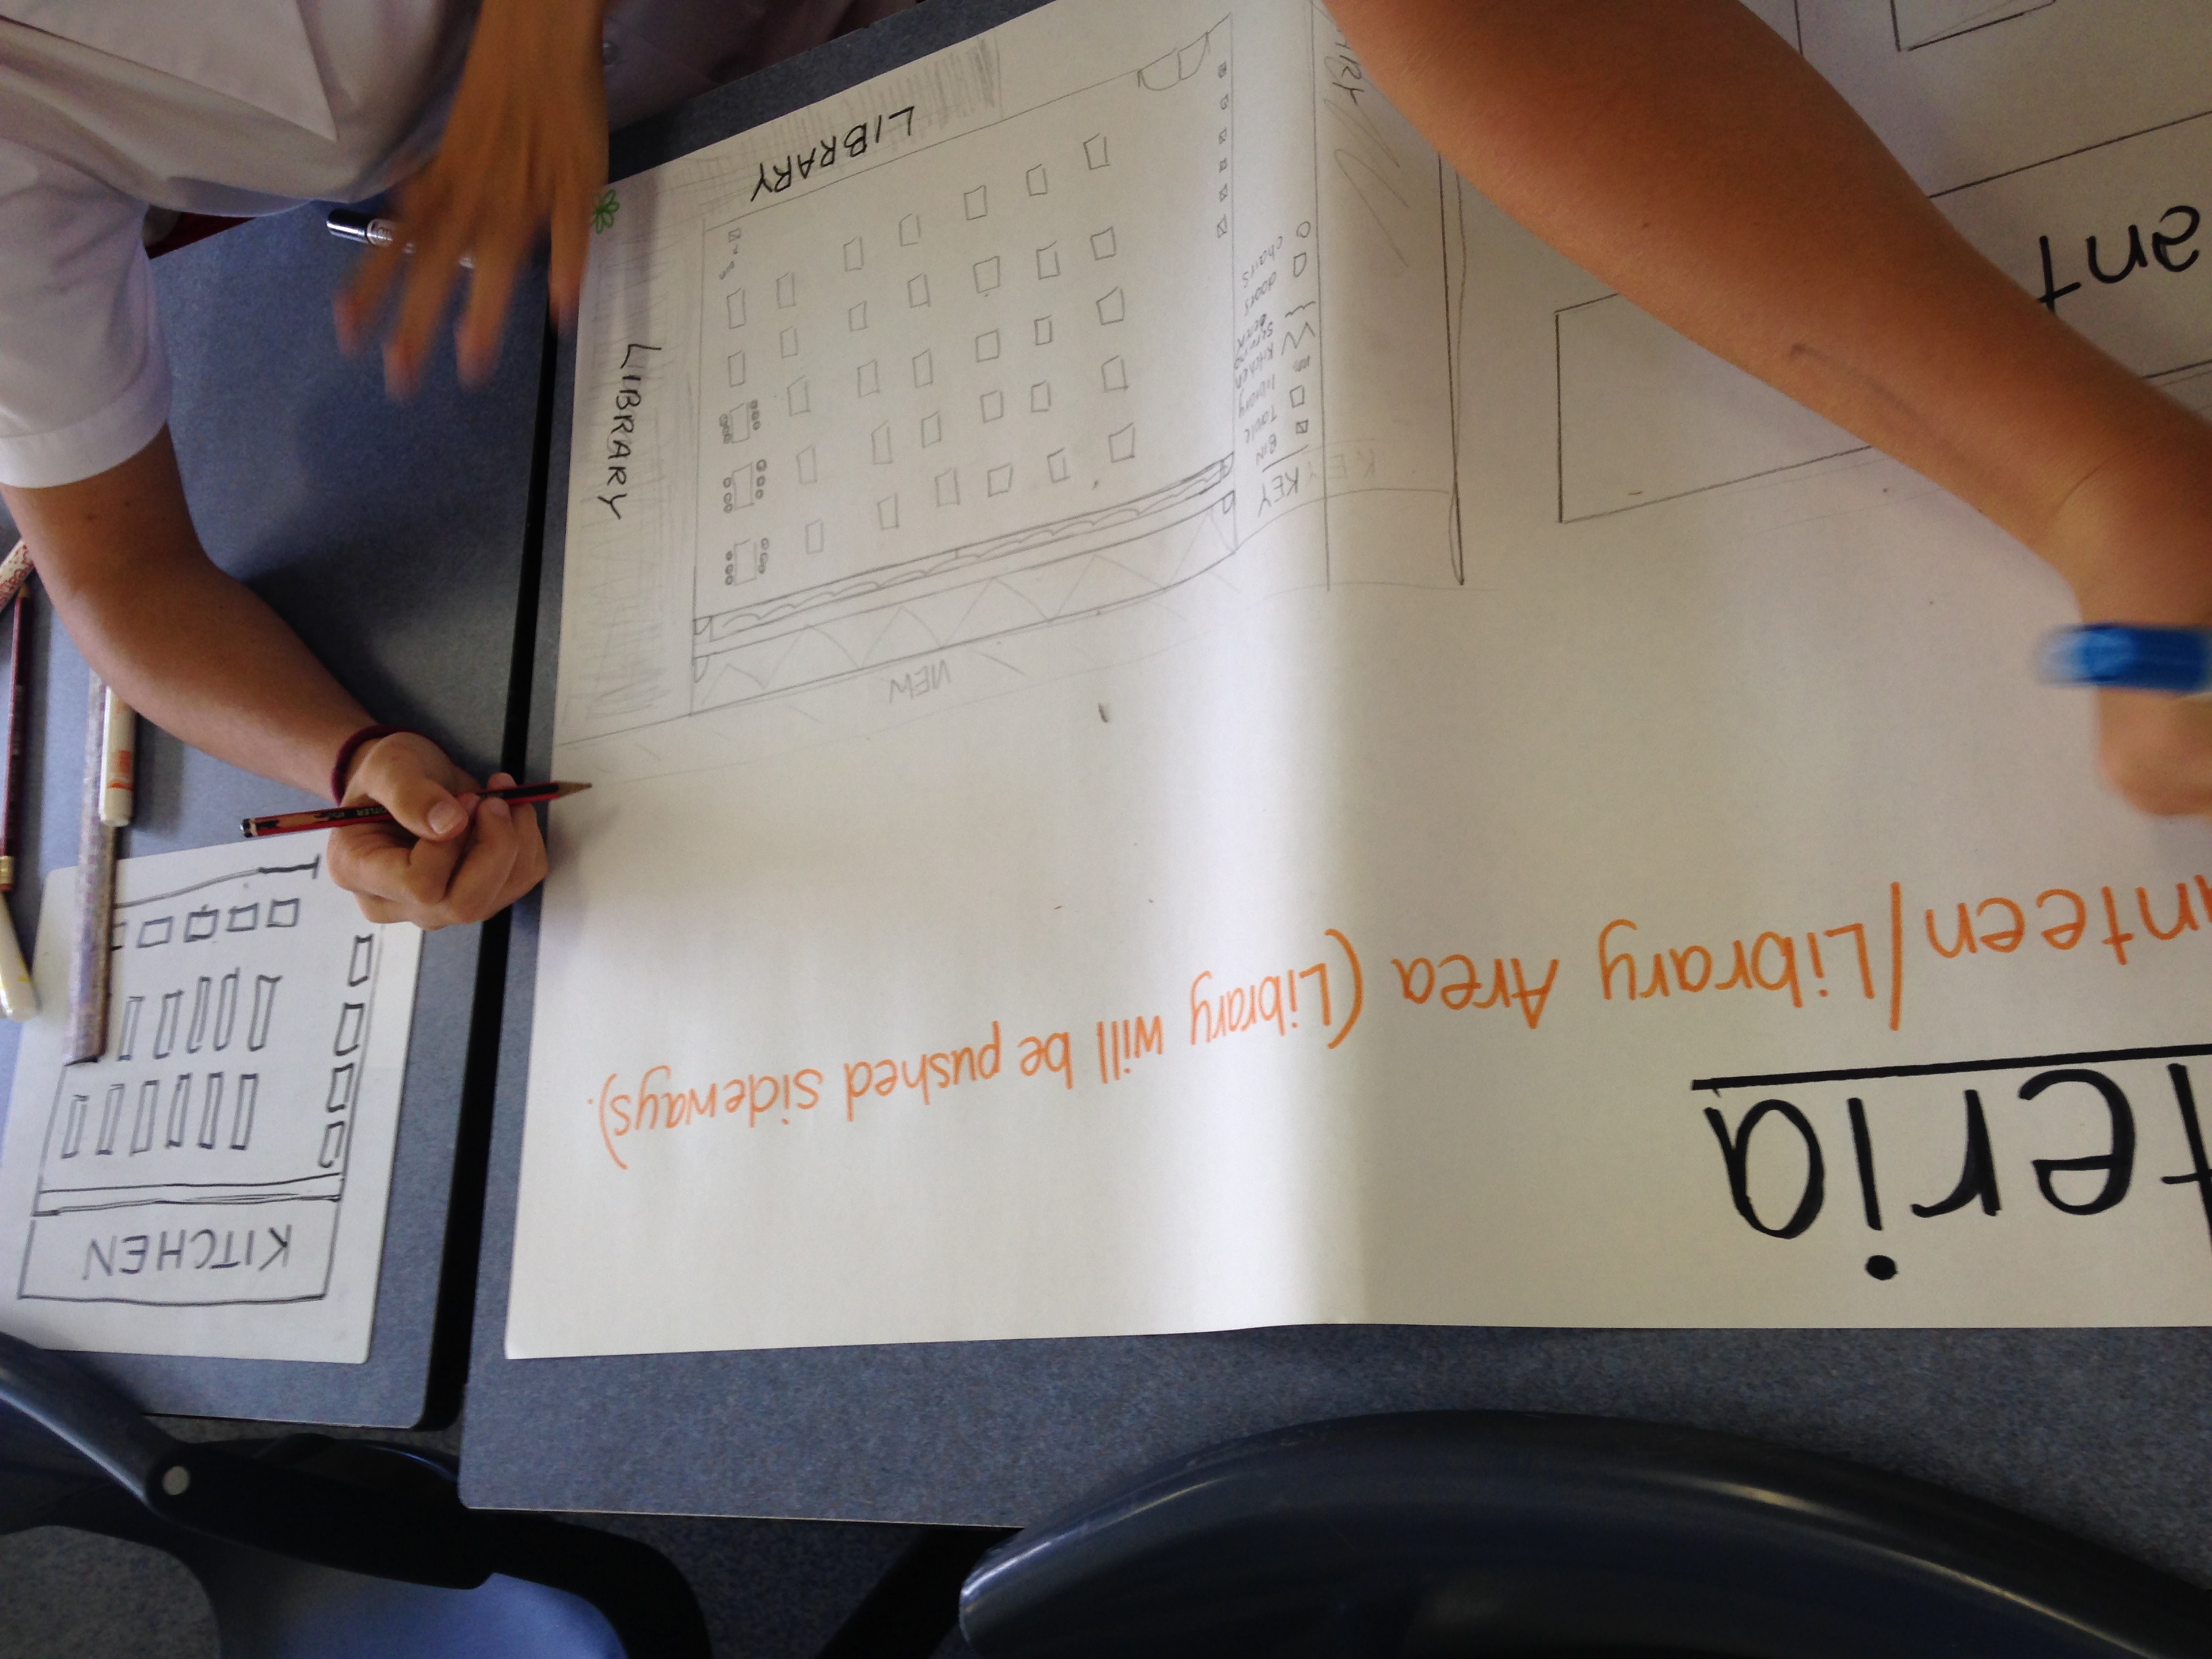 teria
anteen/Library Area (Library will be pushed sideways).
KITCHEN
VIEW
KEY
KEY
BIN
Table
library
Kitchen
serving
benk
doors
chairs
LIBRARY
LIBRARY
ant